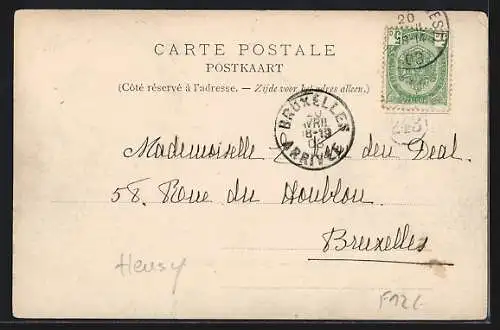 CARTE POSTALE
POSTKAART
(Côté réservé à l'adresse. — Zijde voor het adres alleen.)
BRUXELLES
18-19
ARRIVÉE
Mademoiselle den Deal.
58. Rue du Houblon.
Bruxelles
Heusy